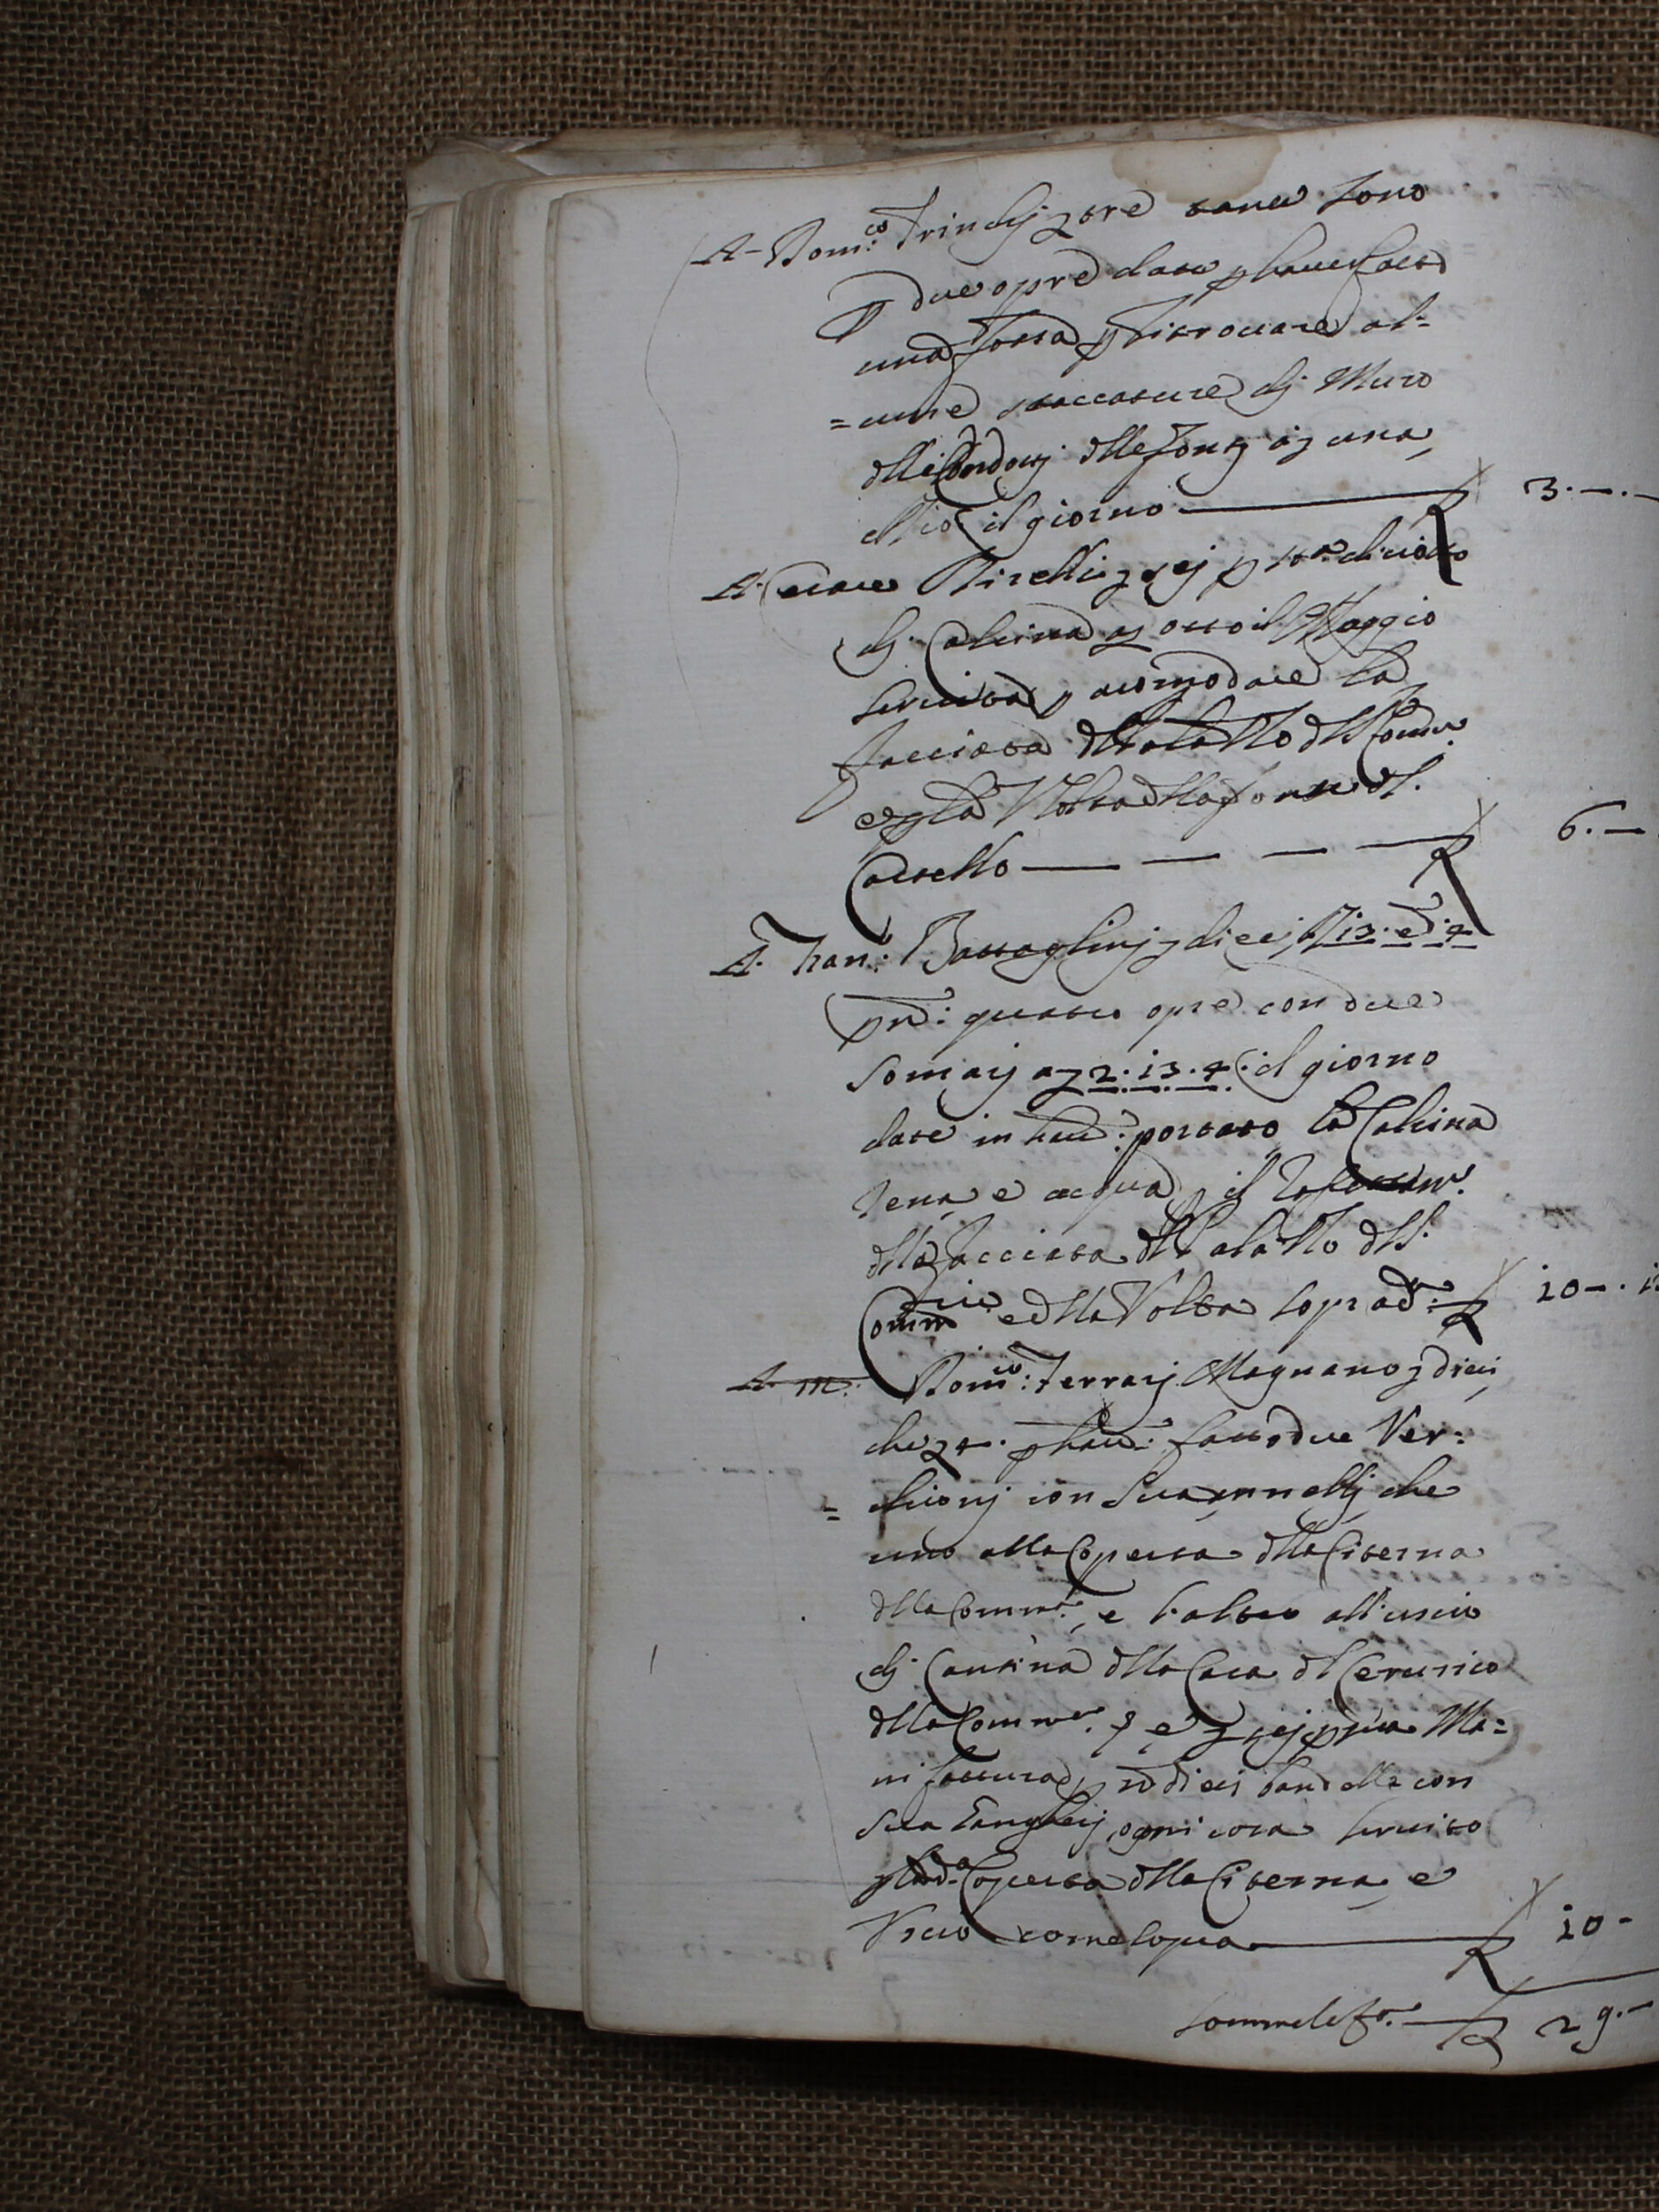 A Dom:co Trinchj £ tre tanti sono
p due opre date p haver fatto
una fossa p ritrovare al=
=cune staccature dj Muro
dlli Condotj dlle Fontj a £ una
il giorno £ 3.—.—
A Cesare Pirelli £ sej p
dj Calcina a £ otto il Moggio
servita p acomodare la
facciata dl Palazzo dl Comm.
e p la Volta dlla fonte dl
Castello — — — — £ 6.—
A Fran: Battaglinj £ dieci, 13. e 4
p quattro opre con due
Somarj a £ 2.13.4. il giorno
date in haver portato la Calcina
rena e acqua p il
dlla facciata dl Palazzo dl
Comm e dlla Volta soprad: £ 10—.
A m: Dom:co Ferrarj Magnano £ dieci
che £ 4. p haver fatto due Ver=
=chionj con sua annellj che
uno alla Coperta dlla Citerna
dlla Comm., e l'altro all'uscio
dj Cantina dlla Casa dl Cerusico
dlla Comm. e £ sej p sua Ma=
nifattura p dieci bandelle con
sua Gangherj, ogni cosa servito
p la d.a Coperta dlla Citerna e
Uscio come sopra £ 10—
Somma £ 29.—